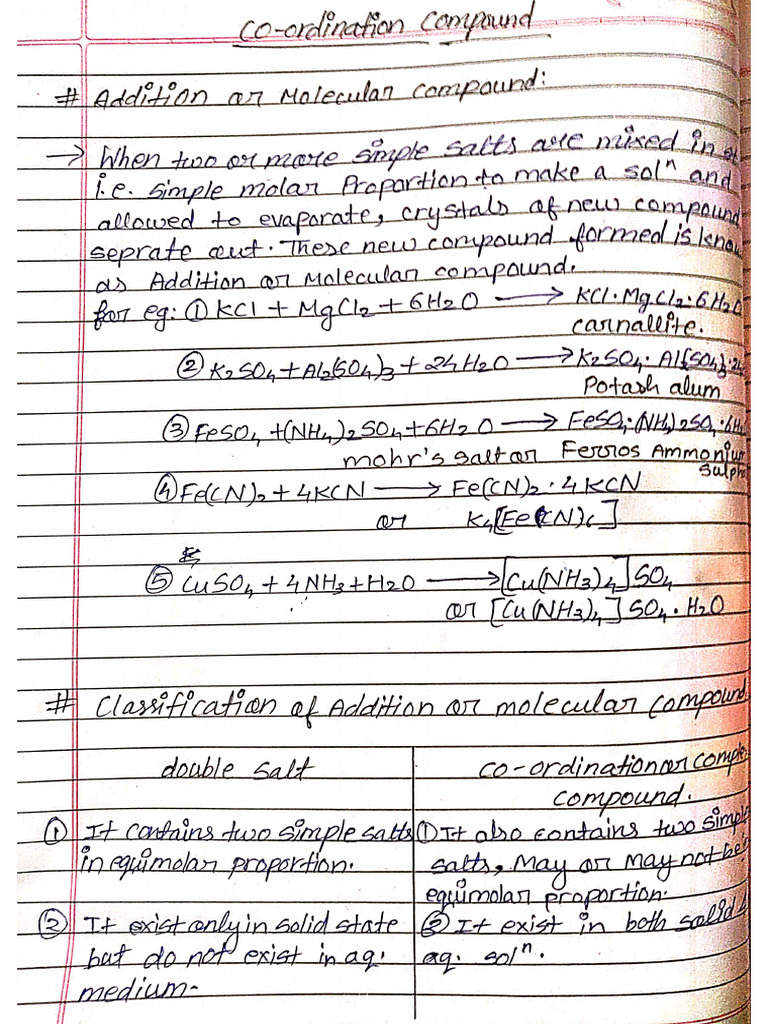 Co-ordination Compound
# Addition or Molecular Compound:
→ When two or more simple salts are mixed in
i.e. simple molar Proportion to make a solⁿ and
allowed to evaporate, crystals of new compound
seprate out. These new compound formed is know
as Addition or Molecular compound.
for eg: ① KCl + MgCl2 + 6H2O → KCl·MgCl2·6H2O
carnallite.
② K2SO4 + Al2(SO4)3 + 24H2O → K2SO4·Al2(SO4)3·24
Potash alum
③ FeSO4 + (NH4)2SO4 + 6H2O → FeSO4·(NH4)2SO4·6H
mohr's salt or Ferros Ammonium
Sulph
④ Fe(CN)2 + 4KCN → Fe(CN)2·4KCN
or K4[Fe(CN)6]
⑤ CuSO4 + 4NH3 + H2O → [Cu(NH3)4]SO4
or [Cu(NH3)4]SO4·H2O
# Classification of Addition or molecular compound
double salt
co-ordination or comple
compound.
① It contains two simple salts
in equimolar proportion.
① It also contains two simple
salts, May or May not be in
equimolar proportion.
② It exist only in solid state
but do not exist in aq.
medium-
② It exist in both solid &
aq. solⁿ.